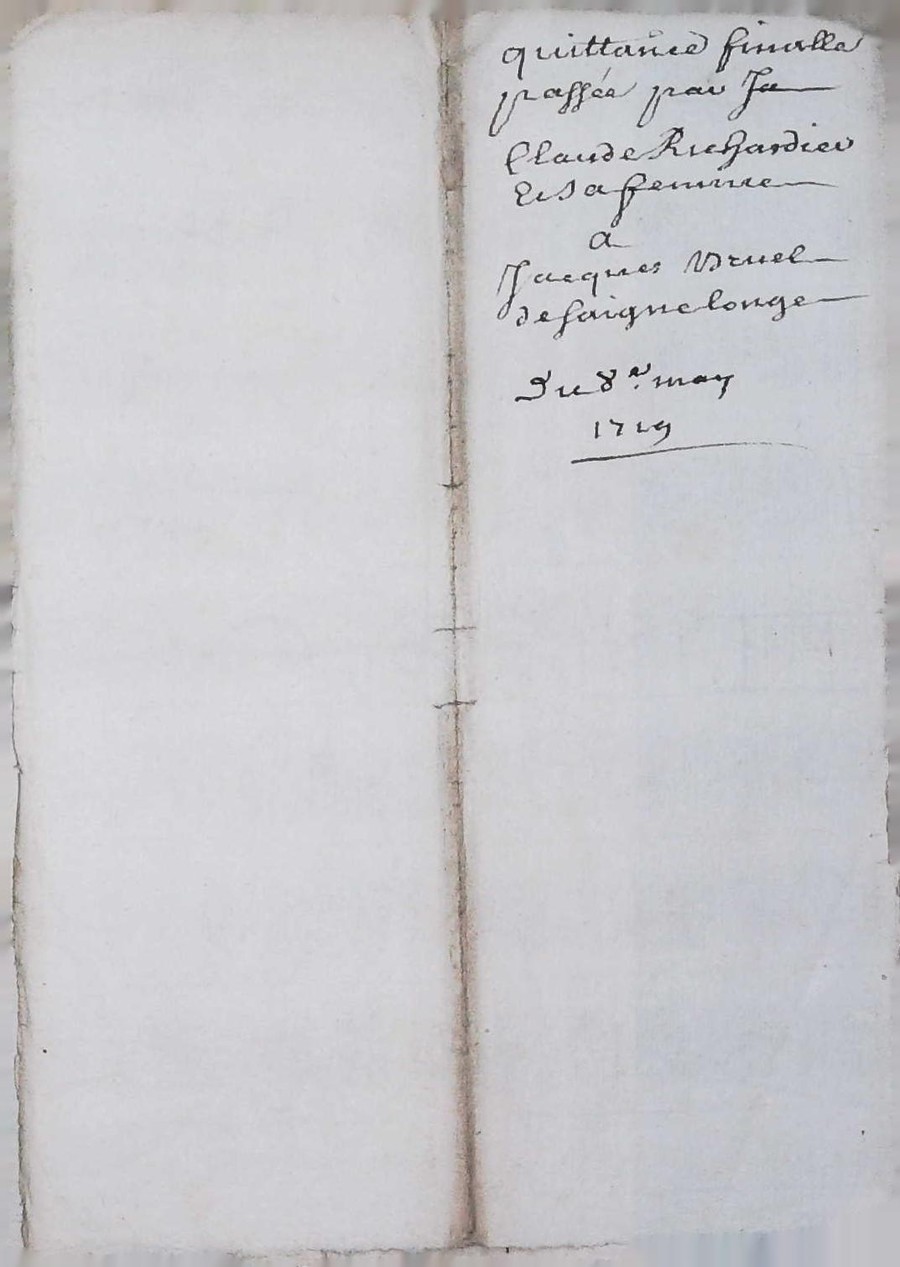 quittance finalle
passée par Ja
Claude Richardier
Et Sa femme
a
Jacques Vruel
de faignelonge
Du 8e. may
1719